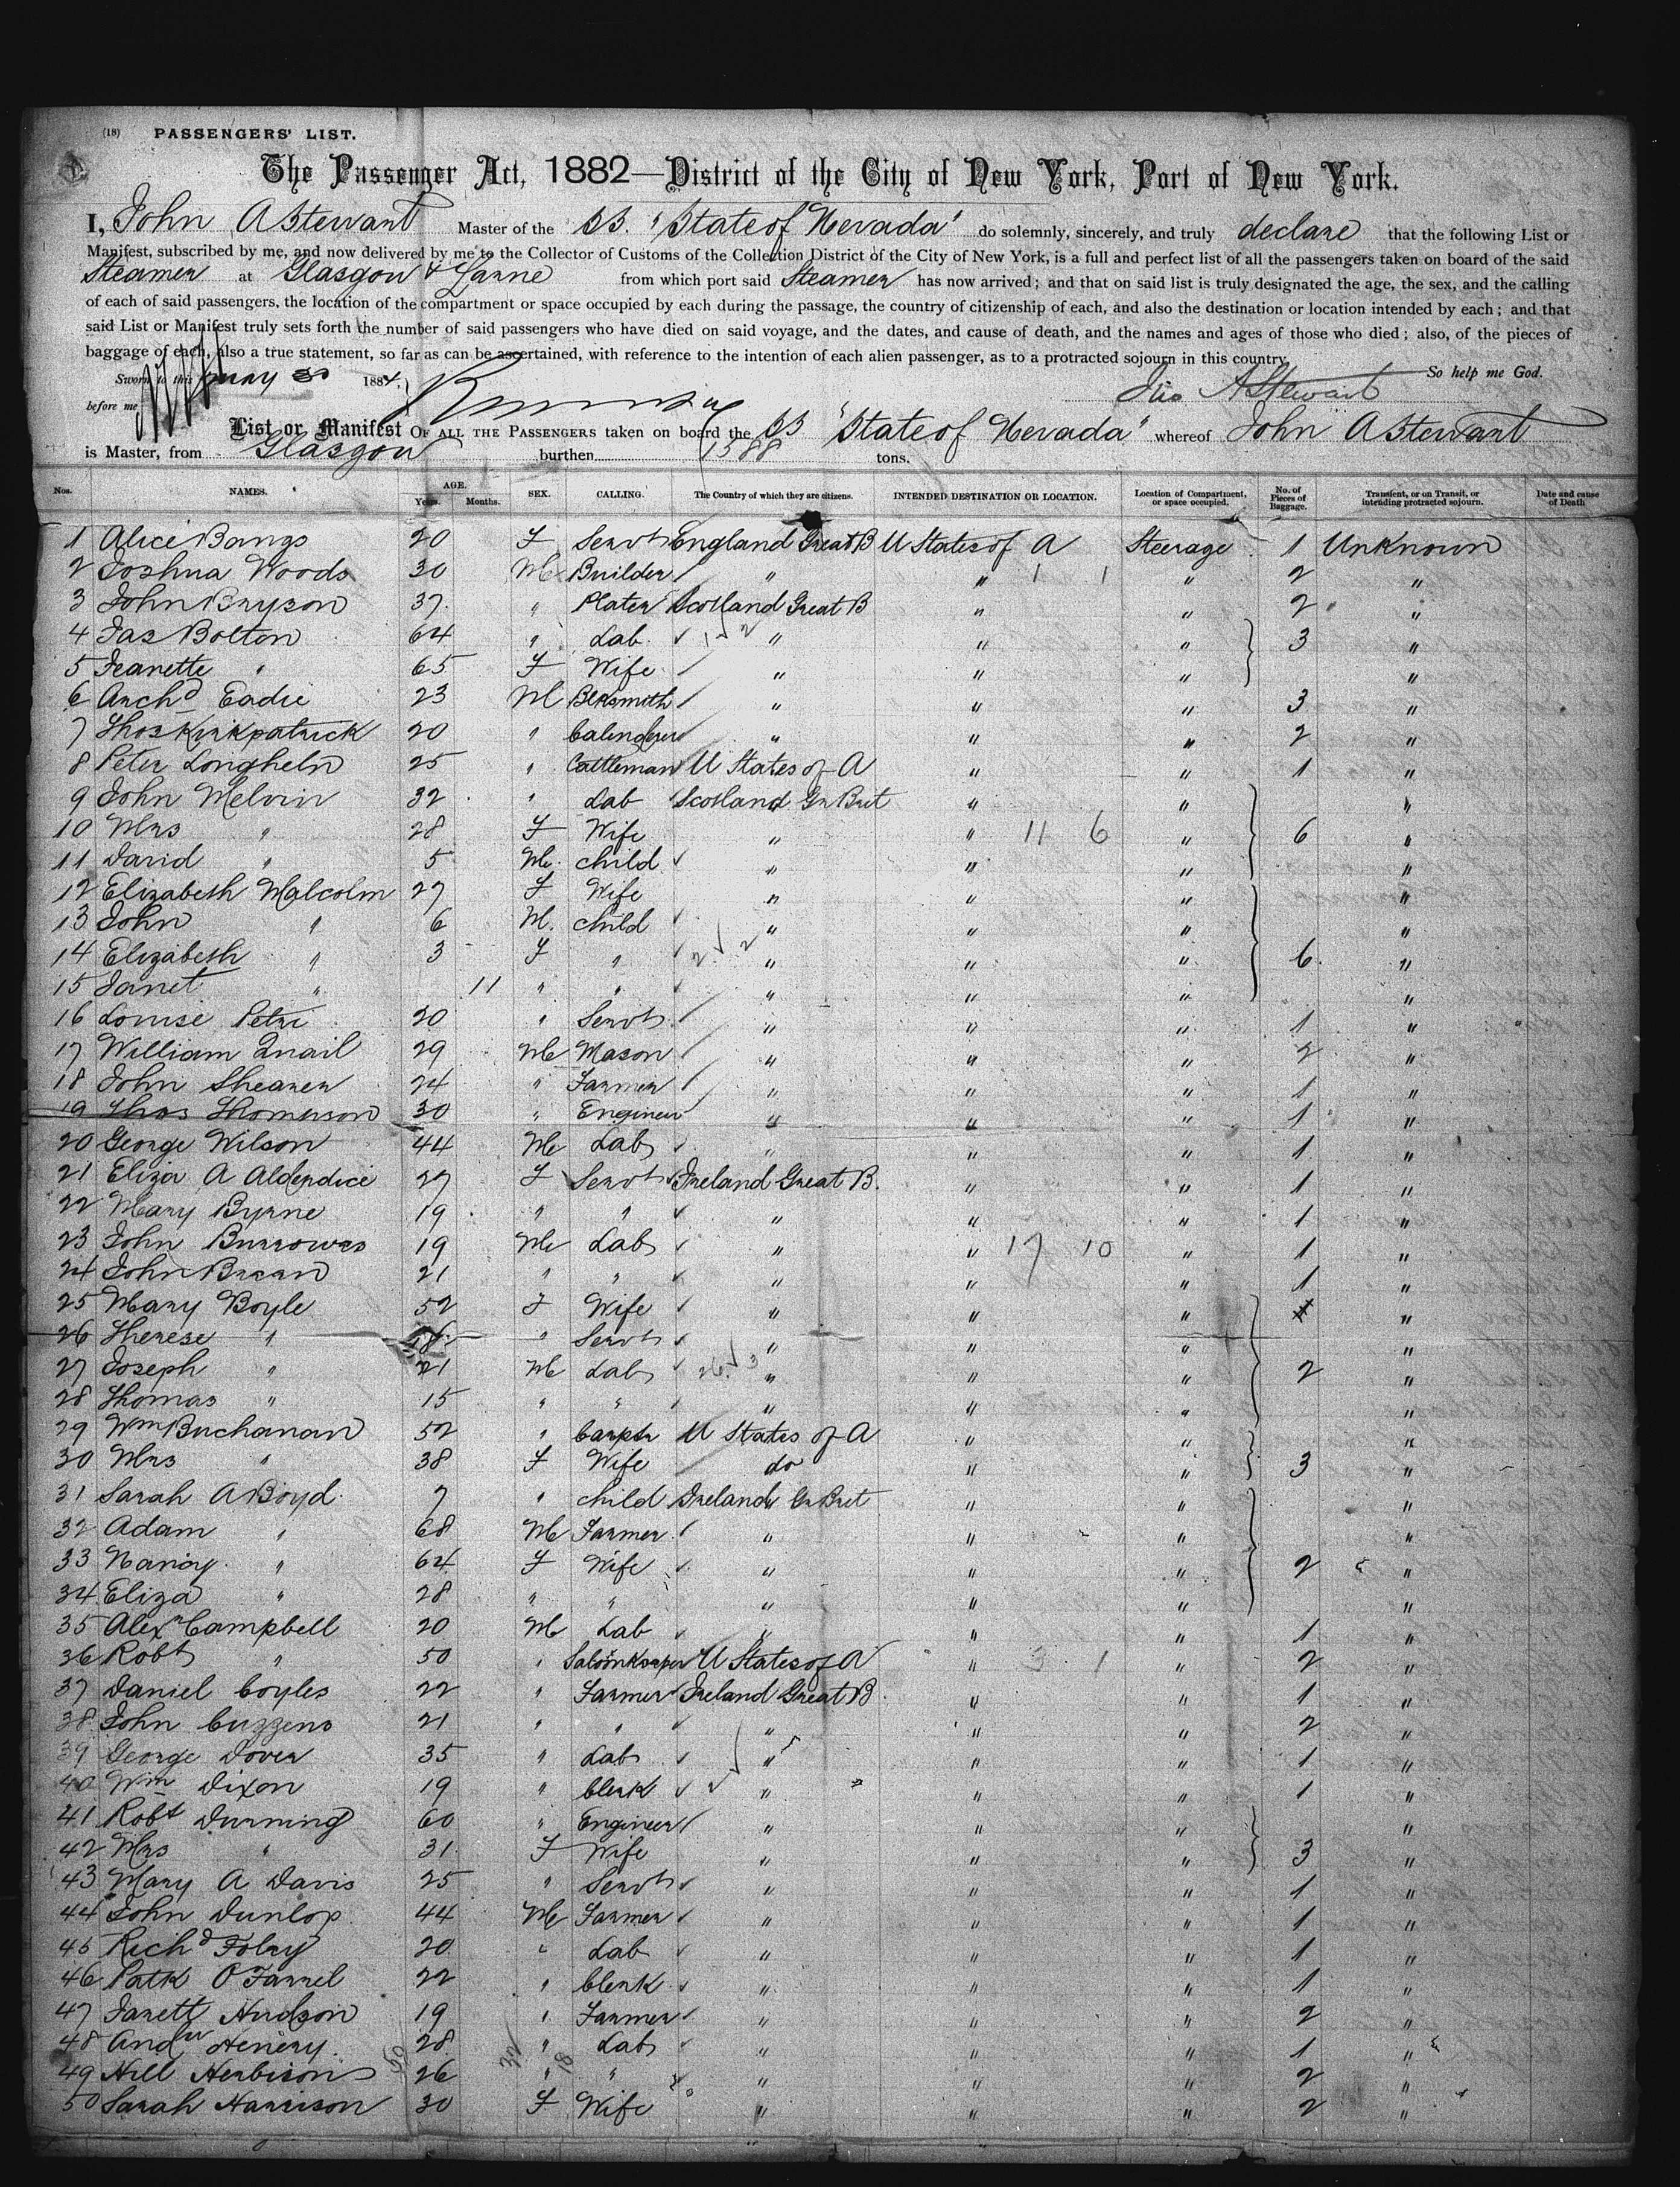 (18) PASSENGERS' LIST.
The Passenger Act, 1882—District of the City of New York, Port of New York.
I, John A Stewart Master of the SS. "State of Nevada" do solemnly, sincerely, and truly declare that the following List or
Manifest, subscribed by me, and now delivered by me to the Collector of Customs of the Collection District of the City of New York, is a full and perfect list of all the passengers taken on board of the said
Steamer at Glasgow & Larne from which port said Steamer has now arrived; and that on said list is truly designated the age, the sex, and the calling
of each of said passengers, the location of the compartment or space occupied by each during the passage, the country of citizenship of each, and also the destination or location intended by each; and that
said List or Manifest truly sets forth the number of said passengers who have died on said voyage, and the dates, and cause of death, and the names and ages of those who died; also, of the pieces of
baggage of each, also a true statement, so far as can be ascertained, with reference to the intention of each alien passenger, as to a protracted sojourn in this country.
Sworn to this May 1884. So help me God.
before me Jno A Stewart
List or Manifest OF ALL THE PASSENGERS taken on board the SS "State of Nevada" whereof John A Stewart
is Master, from Glasgow burthen 1588 tons.
Nos. NAMES. AGE. Years. Months. SEX. CALLING. The Country of which they are citizens. INTENDED DESTINATION OR LOCATION. Location of Compartment, or space occupied. No. of Pieces of Baggage. Transient, or on Transit, or intending protracted sojourn. Date and cause of Death
1 Alice Bangs 20 F Servt England Great B U States of A Steerage 1 Unknown
2 Joshua Woods 30 M Builder " " 1 1 " 2 "
3 John Bryson 37 " Plater Scotland Great B " " 2 "
4 Jas Bolton 64 " Lab " " " 3 "
5 Jeanette " 65 F Wife " " " "
6 Archd Eadie 23 M Blksmith " " " 3 "
7 Thos Kirkpatrick 20 " Calenderer " " " 2 "
8 Peter 25 " Cattleman U States of A " " 1 "
9 John Melvin 32 " Lab Scotland Gr Brit " " "
10 Mrs " 28 F Wife " " 11 6 " 6 "
11 David " 5 M. child " " " "
12 Elizabeth Malcolm 27 F Wife " " " "
13 John " 6 M. child " " " "
14 Elizabeth " 3 F " " " " 6 "
15 Janet " 11 " " " " " "
16 Louise Petrie 20 " Servt " " " 1 "
17 William Quail 29 M Mason " " " 2 "
18 John Shearer 24 " Farmer " " " 1 "
19 Thos Thomerson 30 " Engineer " " " 1 "
20 George Wilson 44 M Lab " " " 1 "
21 Eliza A Alderdice 27 F Servt Ireland Great B. " " 1 "
22 Mary Byrne 19 " " " " " 1 "
23 John Burrowes 19 M Lab " " 17 10 " 1 "
24 John 21 " " " " " 1 "
25 Mary Boyle 52 F Wife " " " "
26 Therese " 18 " Servt " " " "
27 Joseph " 21 M Lab " " " 2 "
28 Thomas " 15 " " " " " "
29 Wm Buchanan 52 " Carptr U States of A " " "
30 Mrs " 38 F Wife do " " 3 "
31 Sarah A Boyd 7 " child Ireland Gr Brit " " "
32 Adam " 68 M Farmer " " " "
33 Nancy " 64 F Wife " " " 2 "
34 Eliza " 28 " " " " " "
35 Alexr Campbell 20 M Lab " " " 1 "
36 Robt " 50 " Saloonkeeper U States of A " 3 1 " 2 "
37 Daniel Coyles 22 " Farmer Ireland Great B " " 1 "
38 John Cuzzens 21 " " " " " 2 "
39 George Dover 35 " Lab " " " 1 "
40 Wm Dixon 19 " Clerk " " " 1 "
41 Robt Durning 60 " Engineer " " " "
42 Mrs " 31 F Wife " " " 3 "
43 Mary A Davis 25 " Servt " " " 1 "
44 John Dunlop 44 M Farmer " " " 1 "
45 Richd Foley 20 " Lab " " " 1 "
46 Patk O'Farrel 22 " Clerk " " " 1 "
47 Jarett Hudson 19 " Farmer " " " 2 "
48 Andw Henery 28 " Lab " " " 1 "
49 Hill Herbison 26 " " " " " 2 "
50 Sarah Harrison 30 F Wife " " " 2 "